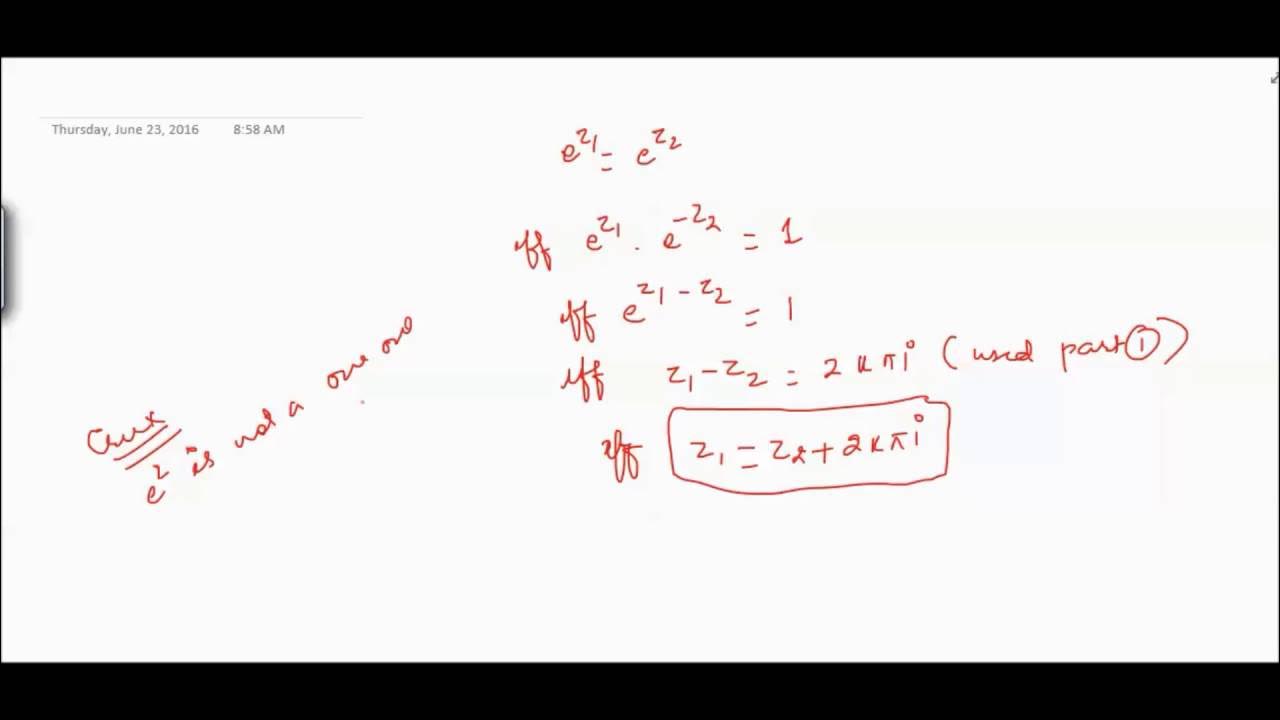 Thursday, June 23, 2016 8:58 AM
e^{z_1} = e^{z_2}
iff e^{z_1} . e^{-z_2} = 1
iff e^{z_1 - z_2} = 1
iff z_1 - z_2 = 2kπi (used part ①)
iff z_1 = z_2 + 2kπi
Crux
e^z is not a one one